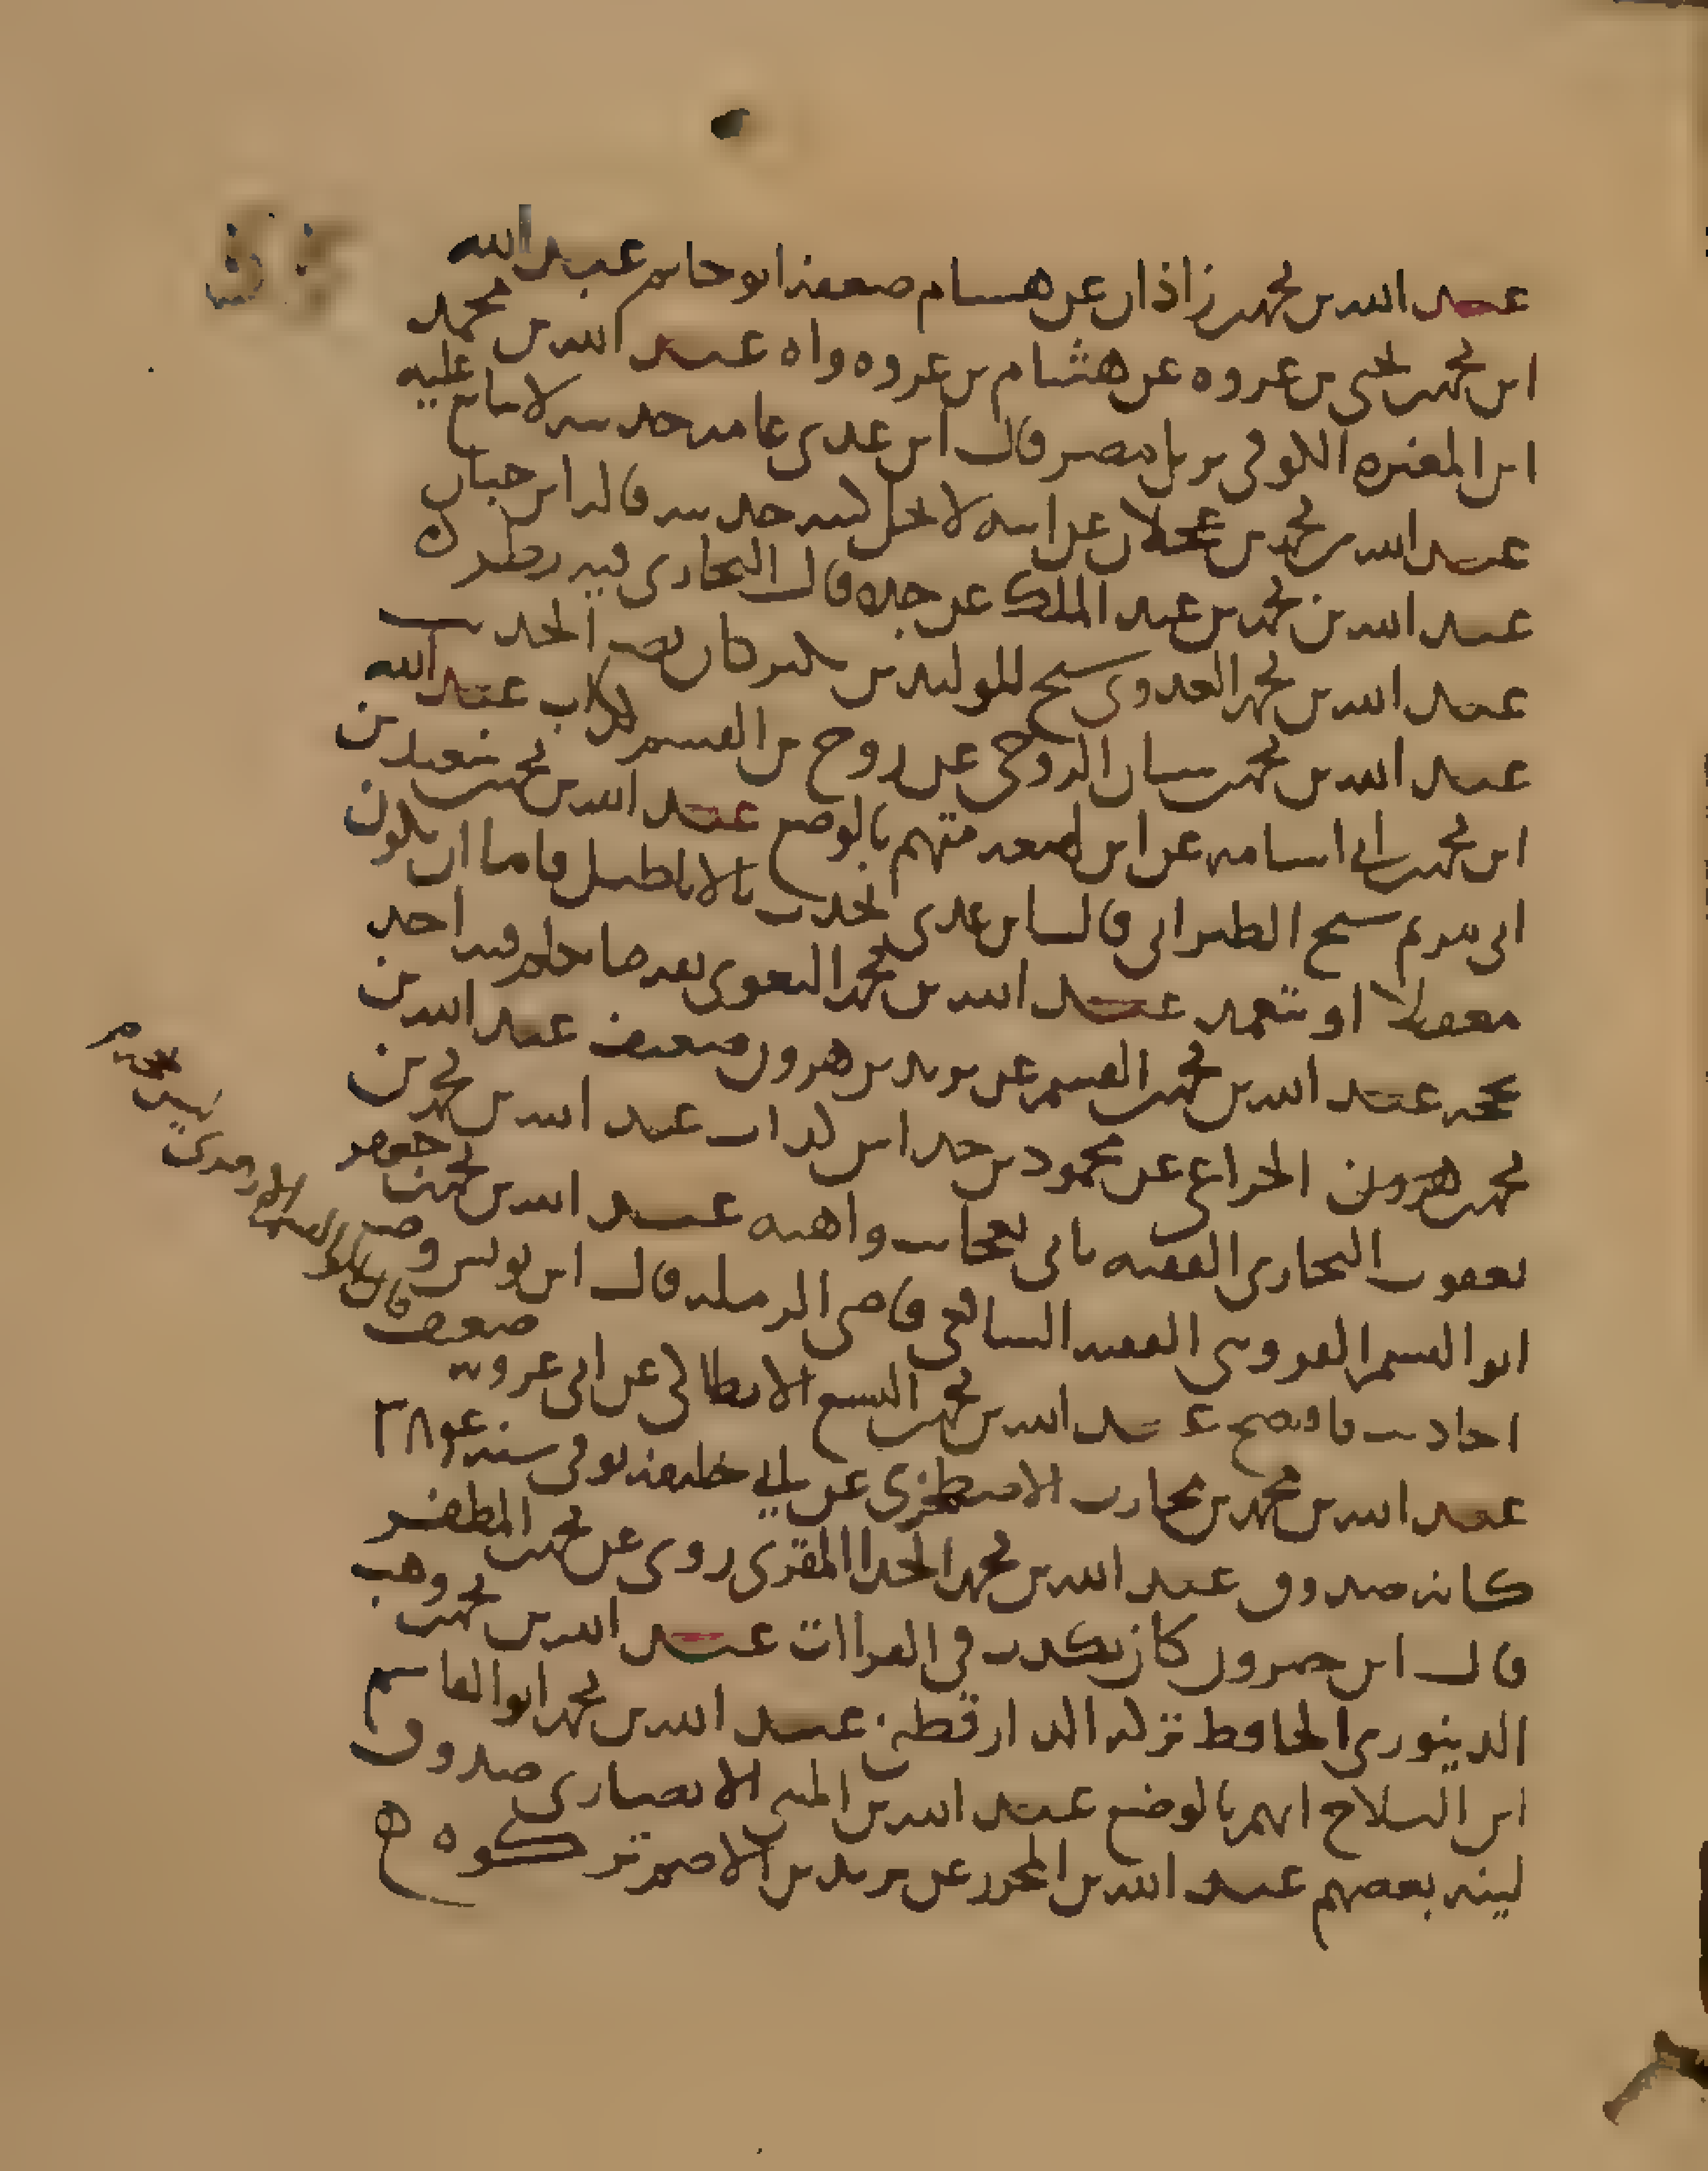 عبد الله بن محمد بن زاذان عن هشام ضعفه ابو حاتم عبد الله
ابن محمد بن يحيى بن عروه عن هشام بن عروه واه عبد الله بن محمد
ابن المغيره الكوفي نزيل مصر قال ابن عدي عامه حديثه لا يتابع عليه
عبد الله بن محمد بن عجلان عن ابيه لا يحل كتب حديثه قاله ابن حبان
عبد الله بن محمد بن عبد الملك عن جده قال البخاري فيه نظر ه
عبد الله بن محمد العدوي شيخ للوليد بن بكير كان يضع الحديث
عبد الله بن محمد بن سنان الروحي عن روح بن القسم كذاب عبد الله
ابن محمد بن ابي اسامه عن ابن لهيعه متهم بالوضع عبد الله بن محمد بن سعيد بن
ابي مريم شيخ الطبراني قال ابن عدي يحدث بالاباطيل فاما ان يكون
مغفلا او يتعمد عبد الله بن محمد البغوي ثقه ما تكلم فيه احد
بحجه عبد الله بن محمد بن القسم عن يزيد بن هرون ضعيف عبد الله بن
محمد بن هرون الخزاعي عن محمود بن خداش كذاب عبد الله بن محمد بن
يعقوب البخاري الفقيه ياتي بعجائب واهيه عبد الله بن محمد بن جعفر
ابو القسم القزويني الفقيه الشافعي قاضي الرمله قال ابن يونس وضع
احاديث فافتضح عبد الله بن محمد بن اليسع الانطاكي عن ابي عروبه ضعف
عبد الله بن محمد بن محارب الاصطخري عن ابي خليفه توفي سنه ٣٨
كانه صدوق عبد الله بن محمد الحذا المقرئ روى عن محمد بن المظفر
قال ابن خيرون كان يكذب في القراات عبد الله بن محمد بن وهب
الدينوري الحافظ تركه الدارقطني عبد الله بن محمد ابو القاسم
ابن الثلاج اتهم بالوضع عبد الله بن المثنى الانصاري صدوق
لينه بعضهم عبد الله بن المحرر عن يزيد بن الاصم تركوه